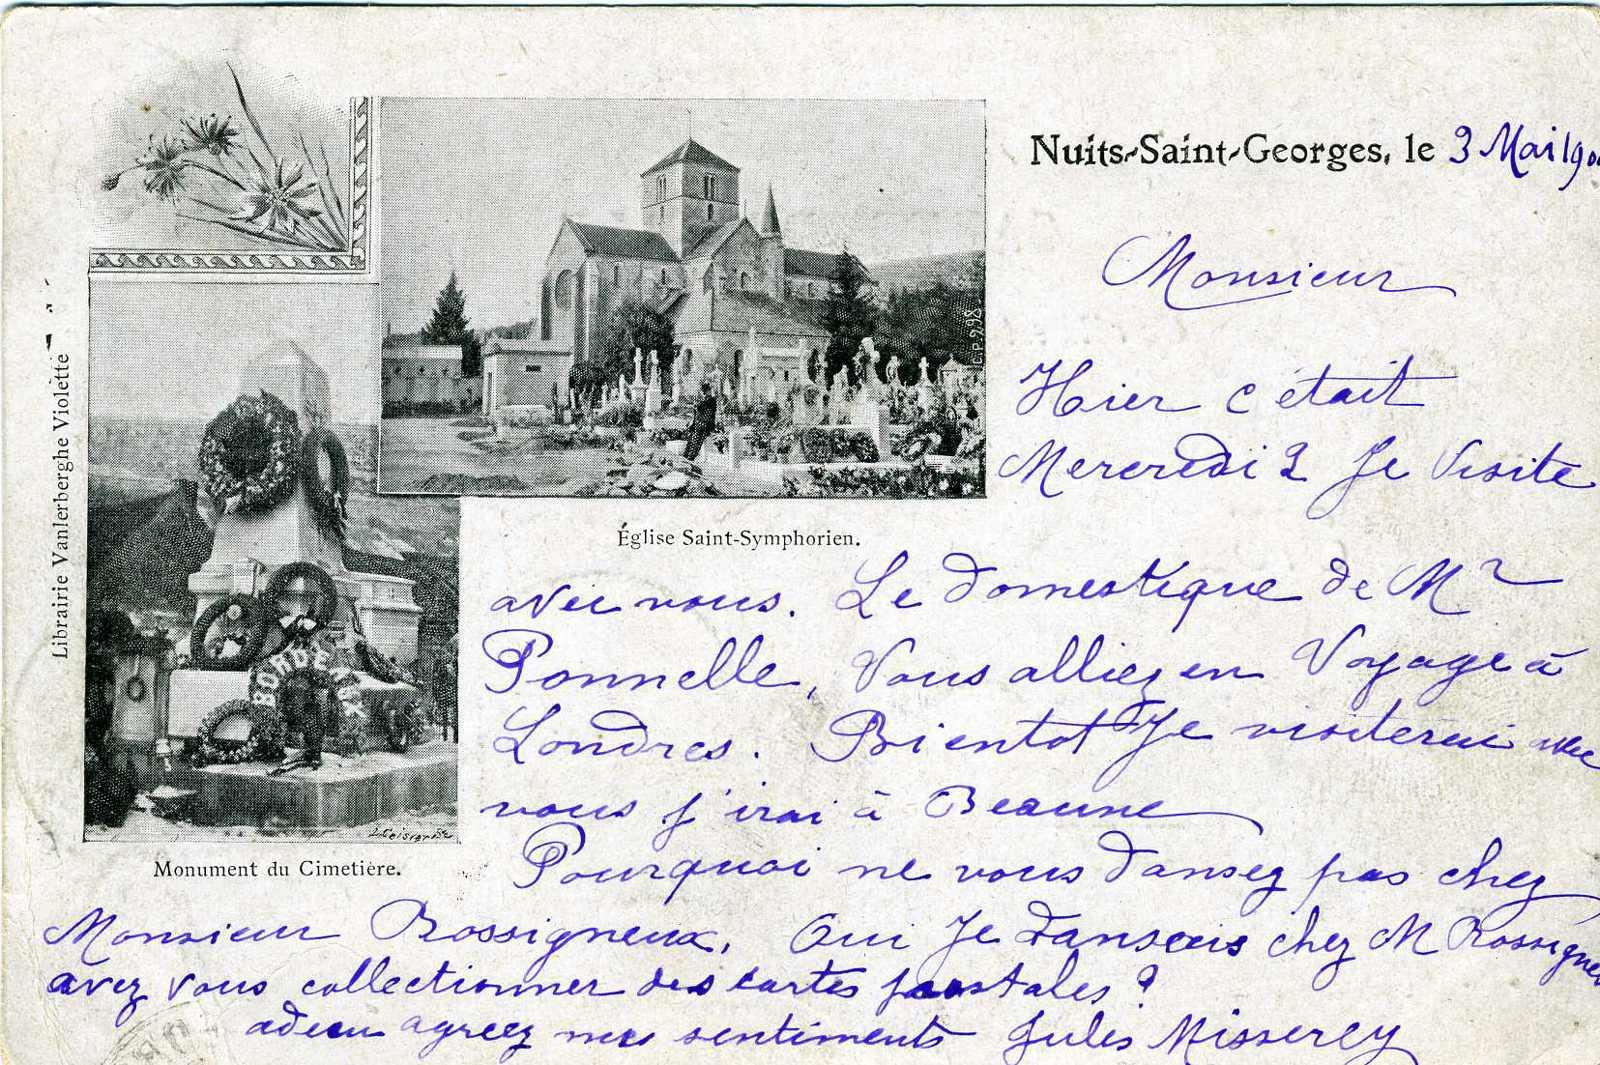 Nuits-Saint-Georges, le 3 Mai 190
Monsieur
Hier c'était
Mercredi 2 Je Visite
avec vous. Le domestique de Mr
Ponnelle, Vous alliez en Voyage à
Londres. Bientot Je visiterai avec
vous j'irai à Beaune
Pourquoi ne vous dansez pas chez
Monsieur Rossigneux. Oui Je dansais chez M Rossigneu
avez vous collectionner des cartes postales ?
adieu agreez mes sentiments Jules Misserey
Église Saint-Symphorien.
C.P. 998
Monument du Cimetière.
BORDEAUX
Librairie Vanlerberghe Violette